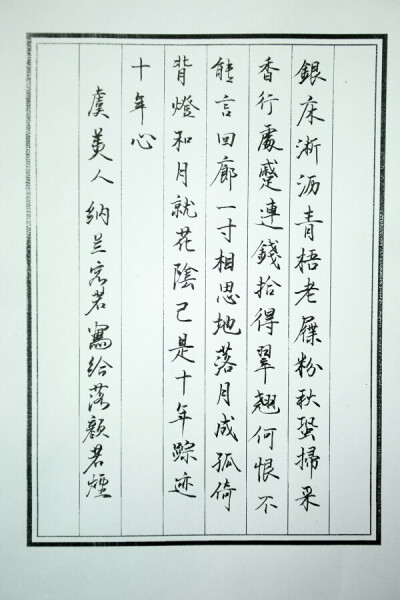 銀床淅沥青梧老屧粉秋蛩掃采
香行處蹙連錢拾得翠翹何恨不
能言回廊一寸相思地落月成孤倚
背燈和月就花陰已是十年踪迹
十年心
虞美人纳兰容若寫给落顏君煙